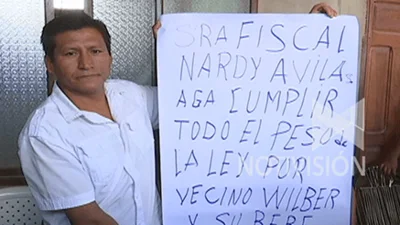 SRA FISCAL
NARDY AVILA s
AGA CUMPLIR
TODO EL PESO de
LA LEY POR
VECINO WILBER
Y SU BEBE
NOTIVISIÓN